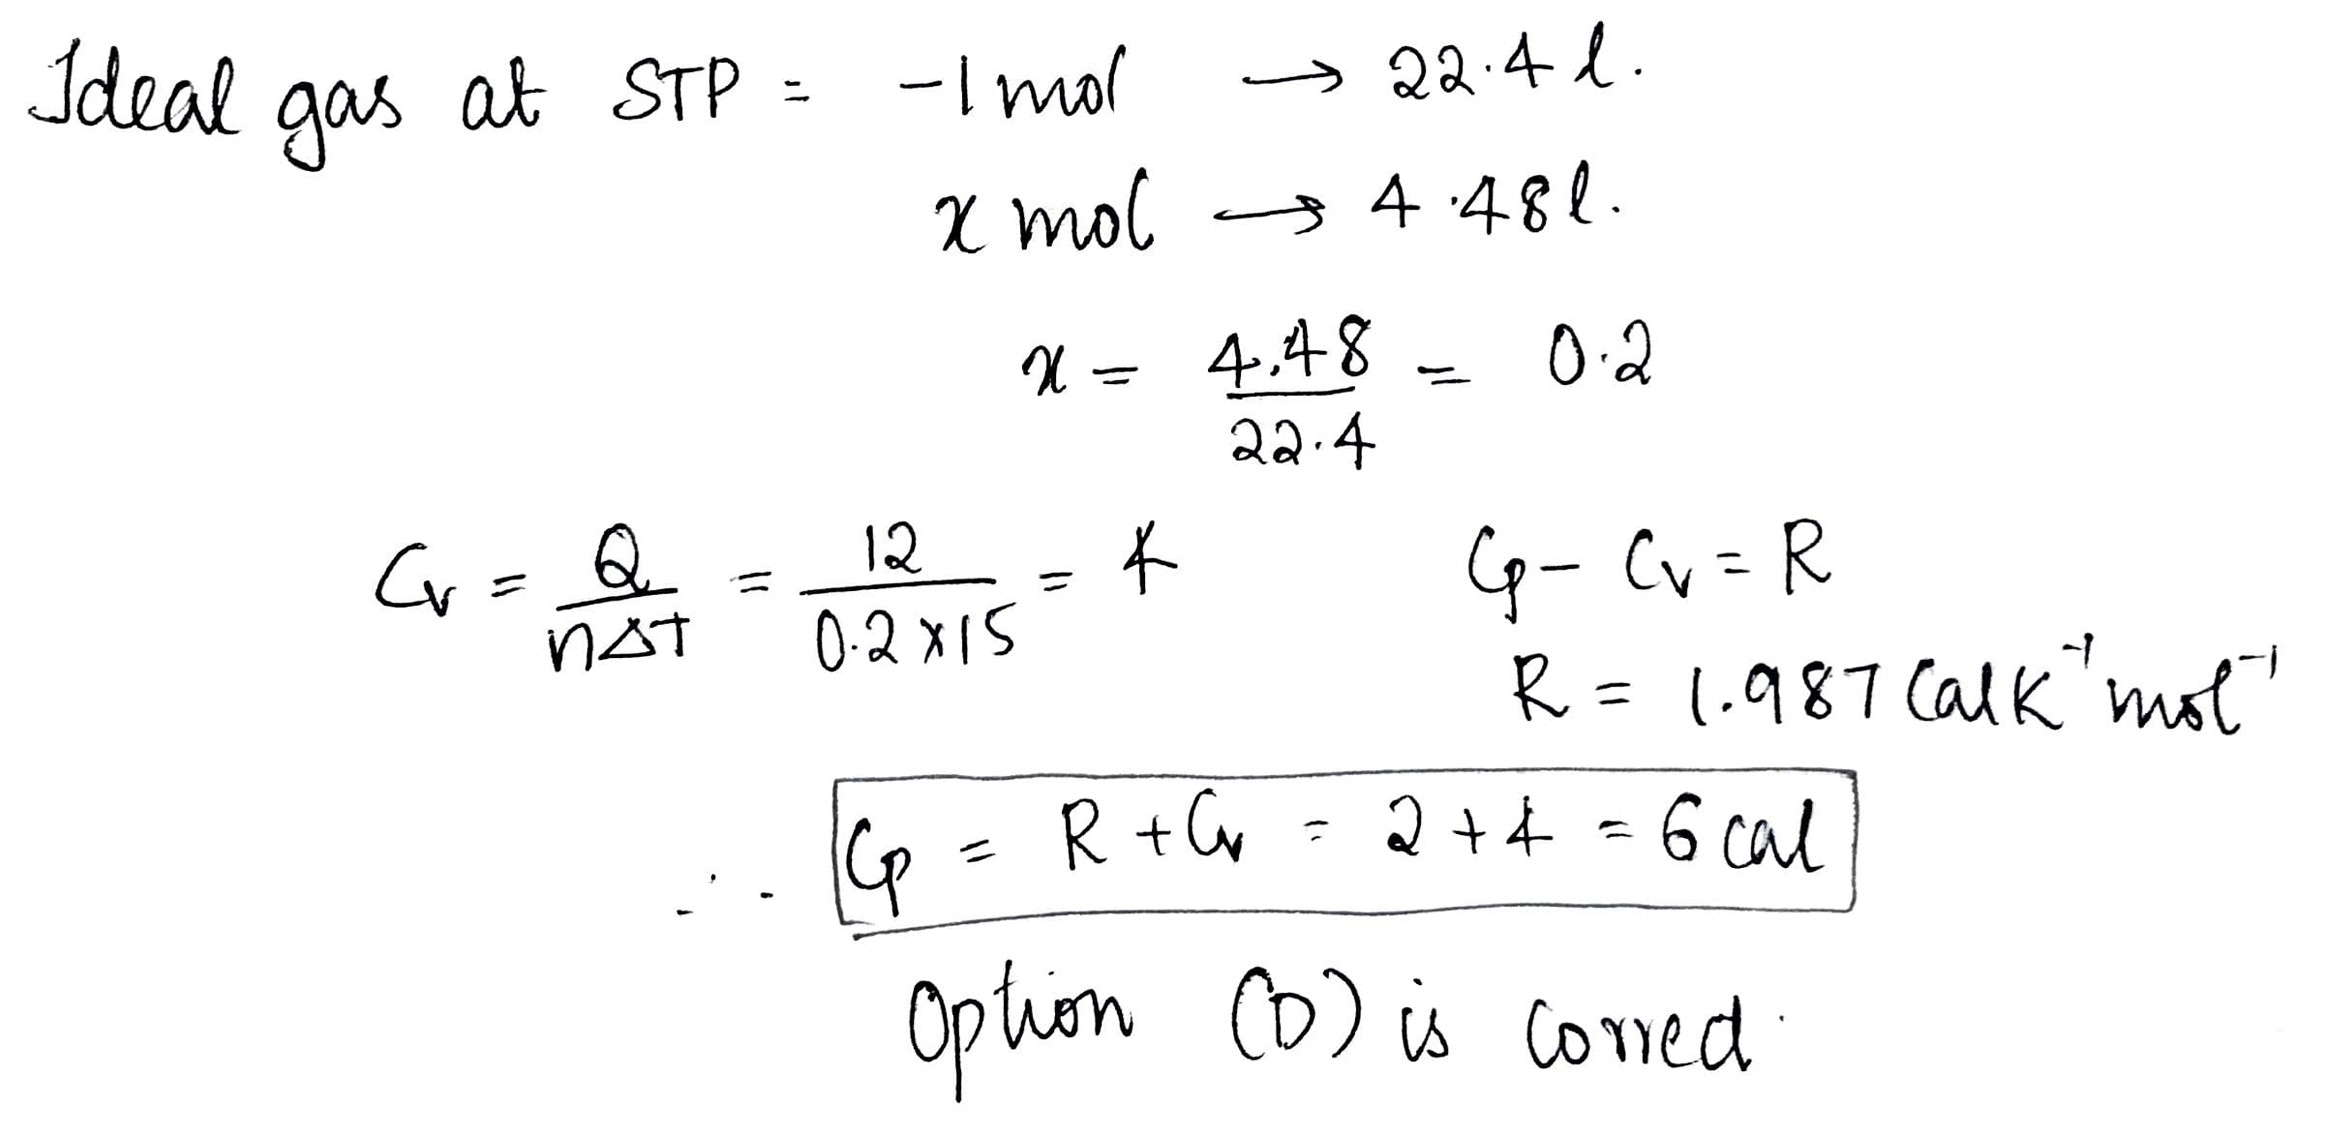 Ideal gas at STP = -1 mol → 22.4 l.
x mol → 4.48 l.
x = 4.48 / 22.4 = 0.2
Cv = Q / nΔT = 12 / 0.2 × 15 = 4
Cp - Cv = R
R = 1.987 Cal K⁻¹ mol⁻¹
∴ Cp = R + Cv = 2 + 4 = 6 cal
Option (D) is correct.